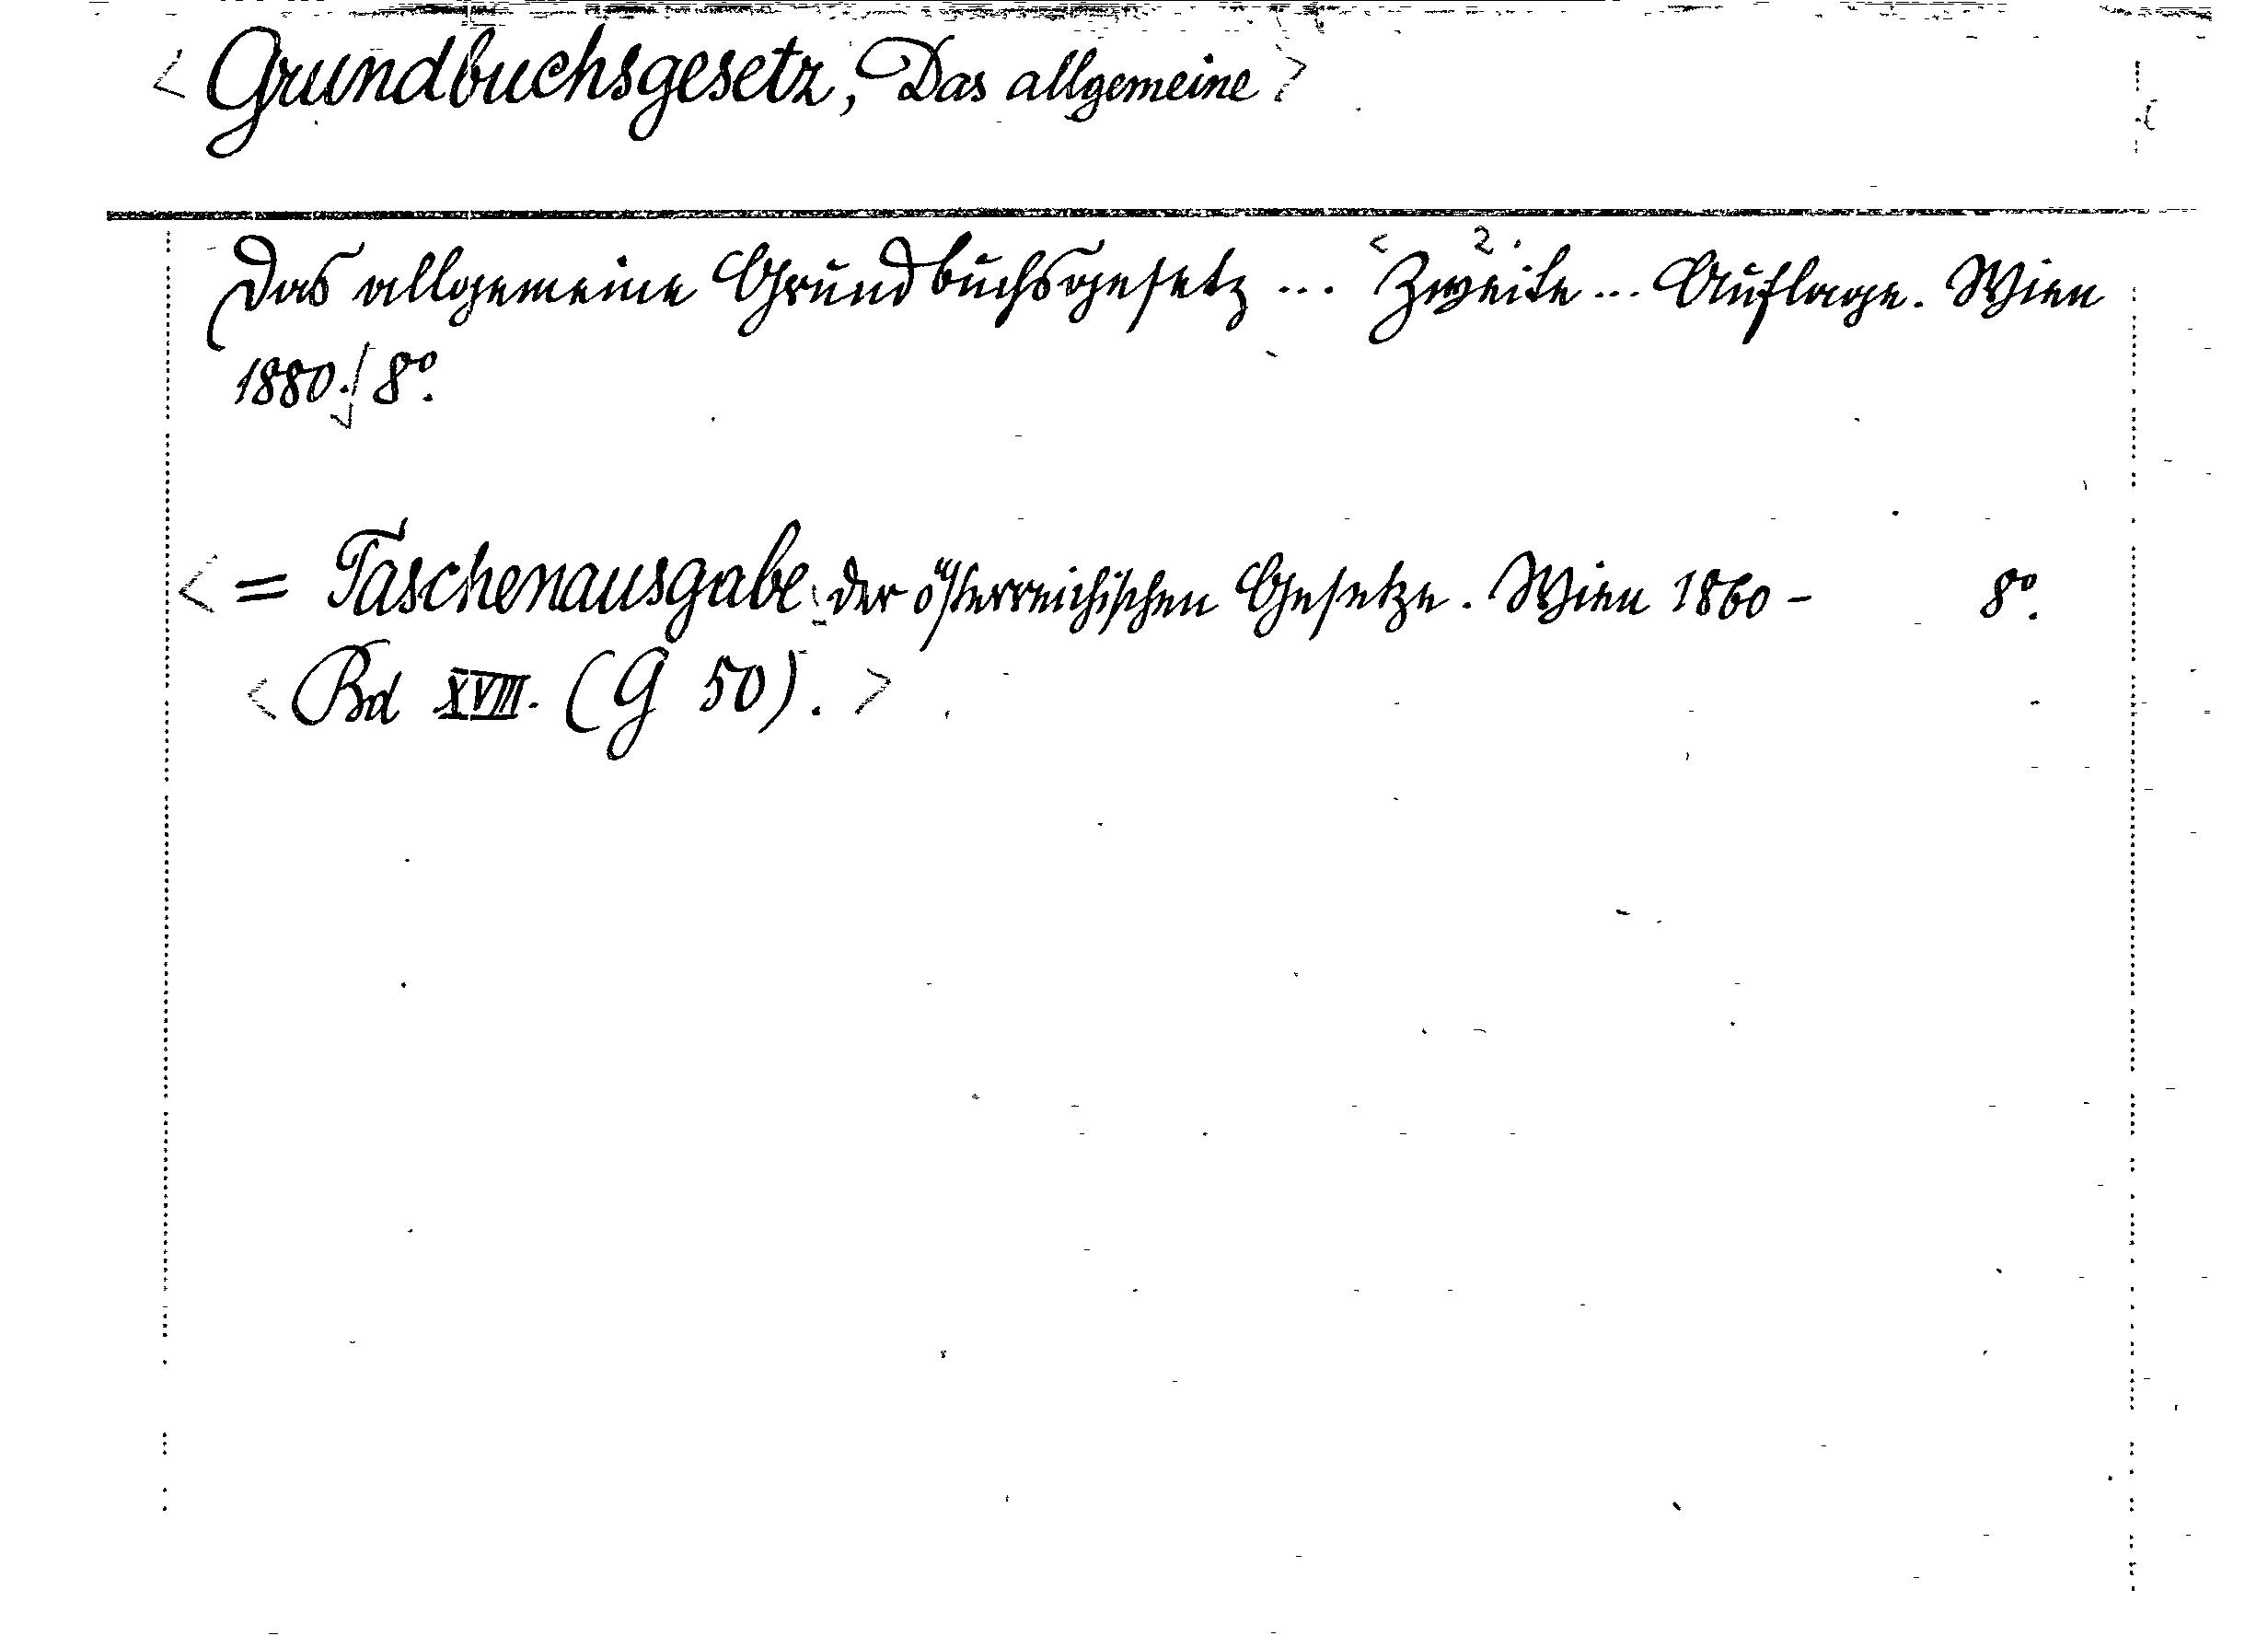 < Grundbuchsgesetz, Das allgemeine >
Das allgemeine Grundbuchsgesetz ... < 2. Zweite ... Auflage. Wien
1880./ 8°.
< = Taschenausgabe der österreichischen Gesetze. Wien 1860 - 8°.
< Bd XVIII. (G 50). >